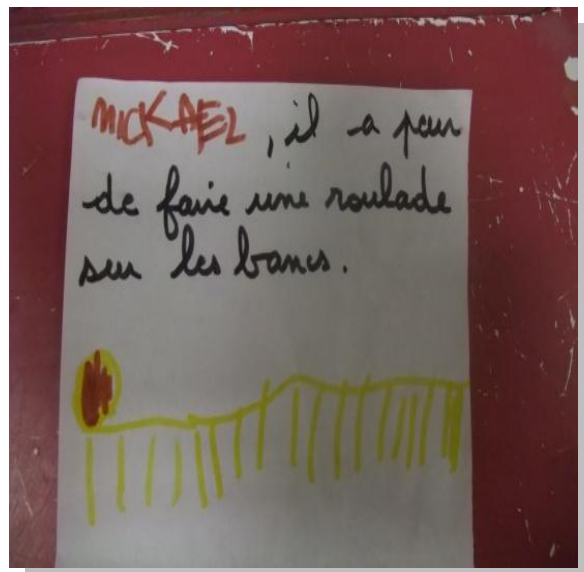 MICKAEL, il a peur
de faire une roulade
sur les bancs.